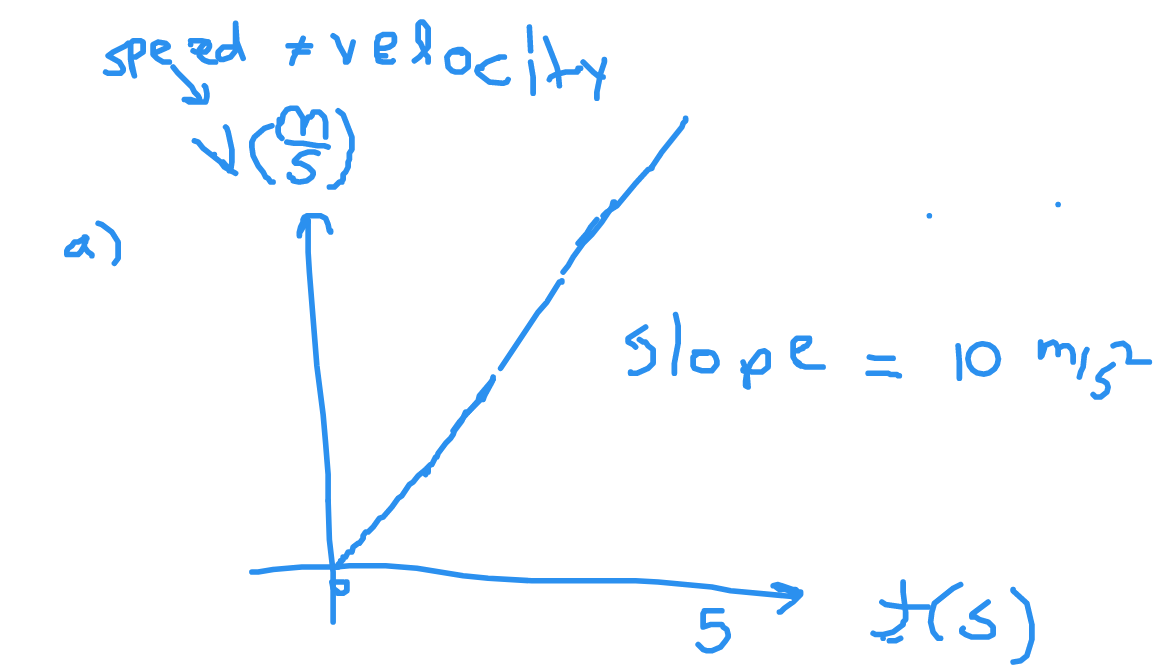 speed ≠ velocity
V (m/s)
a)
slope = 10 m/s²
0
5 t(s)